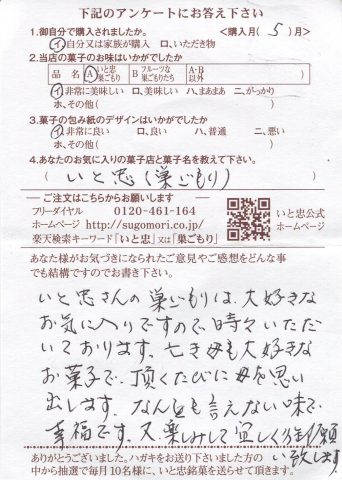 下記のアンケートにお答え下さい
1.御自分で購入されましたか。 <購入月( 5 )月>
イ.自分又は家族が購入 ロ、いただき物
2.当店の菓子のお味はいかがでしたか
品 名 A いと忠巣ごもり B フルーツな巣ごもりたち A・B以外 ( )
イ.非常に美味しい ロ、美味しい ハ、まあまあ ニ、がっかり
ホ、その他( )
3.菓子の包み紙のデザインはいかがでしたか
イ.非常に良い ロ、良い ハ、普通 ニ、悪い
ホ、その他( )
4.あなたのお気に入りの菓子店と菓子名を教えて下さい。
( いと忠(巣ごもり) )
ご注文はこちらからお願いします
フリーダイヤル 0120-461-164
ホームページ http://sugomori.co.jp/
楽天検索キーワード「いと忠」又は「巣ごもり」
いと忠公式
ホームページ
あなた様がお気づきになられたご意見やご感想をどんな事
でも結構ですのでお書き下さい。
いと忠さんの巣ごもりは、大好きな
お気に入りですので時々いただ
いております。亡き母も大好きな
お菓子で、頂くたびに母を思い
出します。なんとも言えない味で
幸福です。又楽しみして宜しくお願
い致します
ありがとうございました。ハガキをお送り下さいました方の
中から抽選で毎月10名様に、いと忠銘菓を送らせて頂きます。